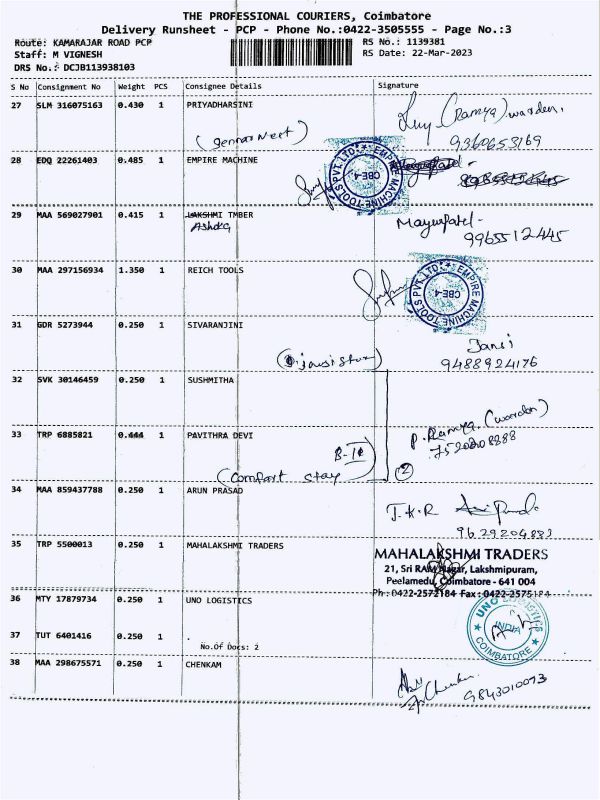 THE PROFESSIONAL COURIERS, Coimbatore
Delivery Runsheet - PCP - Phone No.:0422-3505555 - Page No.:3
Route: KAMARAJAR ROAD PCP
RS No.: 1139381
Staff: M VIGNESH
RS Date: 22-Mar-2023
DRS No.: DCJB113938103
S No Consignment No Weight PCS Consignee Details Signature
27 SLM 316075163 0.430 1 PRIYADHARSINI
(Ramya) warden,
9360653169
28 EDQ 22261403 0.485 1 EMPIRE MACHINE
EMPIRE MACHINE TOOLS PVT. LTD. CBE-4
29 MAA 569027901 0.415 1 LAKSHMI TMBER
Ashok
9965512445
30 MAA 297156934 1.350 1 REICH TOOLS
EMPIRE MACHINE TOOLS PVT. LTD. CBE-4
31 GDR 5273944 0.250 1 SIVARANJINI
Jansi
9488924176
32 SVK 30146459 0.250 1 SUSHMITHA
33 TRP 6885821 0.444 1 PAVITHRA DEVI
P. Ramya (warden)
(comfort stay)
2
34 MAA 859437788 0.250 1 ARUN PRASAD
T.K.R
9629204883
35 TRP 5500013 0.250 1 MAHALAKSHMI TRADERS
MAHALAKSHMI TRADERS
21, Sri RAM Nagar, Lakshmipuram,
Peelamedu, Coimbatore - 641 004
Ph: 0422-2572184 Fax: 0422-2575184
36 MTY 17879734 0.250 1 UNO LOGISTICS
UNO LOGISTICS INDIA COIMBATORE
37 TUT 6401416 0.250 1
No.Of Docs: 2
38 MAA 298675571 0.250 1 CHENKAM
9843010073